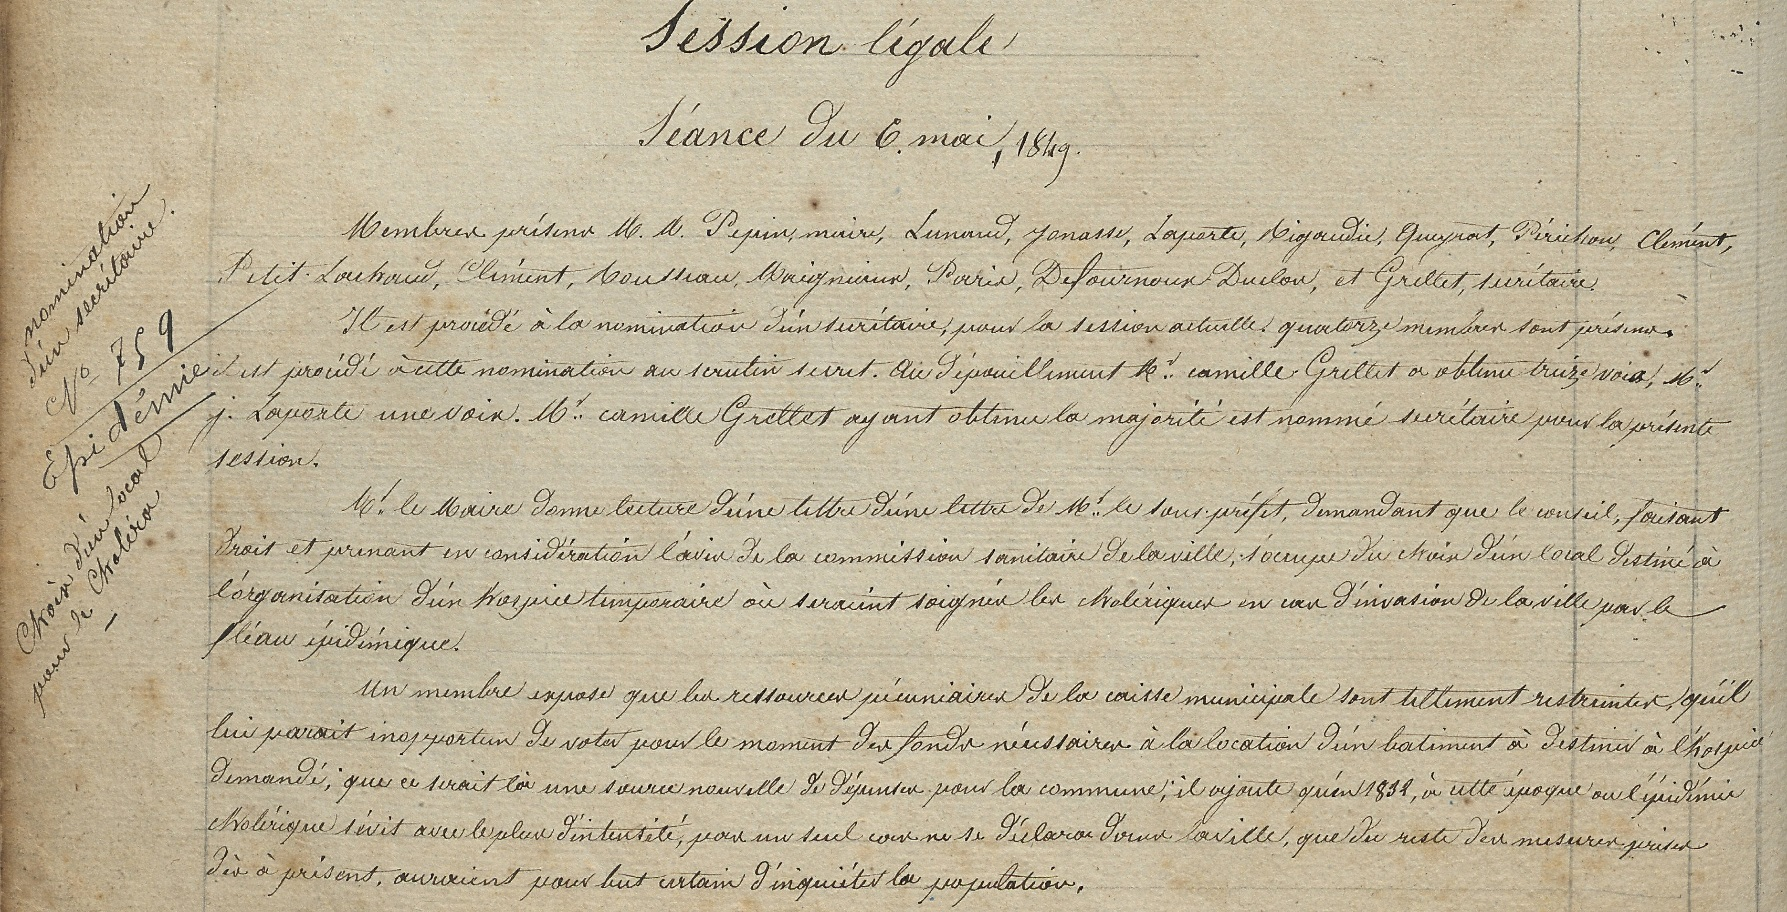 Session légale
Séance du 6. mai, 1849.
nomination
d'un secrétaire.
N° 759
Epidémie
Choix d'un local
pour le Choléra
Membres présens M. M. Pepin, maire, Lunaud, Jonasse, Laporte, Rigaudie, Queyrat, Périchon, Clément,
Petit-Lachaud, Clément, Cousseau, Maigniaux, Paris, Desfournoux-Duclou, et Grellet, secrétaire.
Il est procédé à la nomination d'un secrétaire, pour la session actuelle. quatorze membres sont présens.
il est procédé à cette nomination au scrutin secret. Au dépouillement Mr. camille Grellet a obtenu treize voix, Mr.
j. Laporte une voix. Mr. camille Grellet ayant obtenu la majorité est nommé secrétaire pour la présente
session.
Mr. le Maire donne lecture d'une lettre d'une lettre de Mr. le sous-préfet, demandant que le conseil, faisant
droit et prenant en considération l'avis de la commission sanitaire de la ville, s'occupe du choix d'un local destiné à
l'organisation d'un hospice temporaire où seraient soignés les cholériques en cas d'invasion de la ville par le
fléau épidémique.
Un membre expose que les ressources pécuniaires de la caisse municipale sont tellement restreintes, qu'il
lui parait inopportun de voter pour le moment des fonds nécessaires à la location d'un batiment à destiner à l'hospice
demandé; que ce serait là une source nouvelle de dépenses pour la commune; il ajoute qu'en 1832, à cette époque ou l'épidémie
cholérique sévit avec le plus d'intensité, pas un seul cas ne se déclara dans la ville, que du reste des mesures prises
dès à présent, auraient pour but certain d'inquiéter la population.